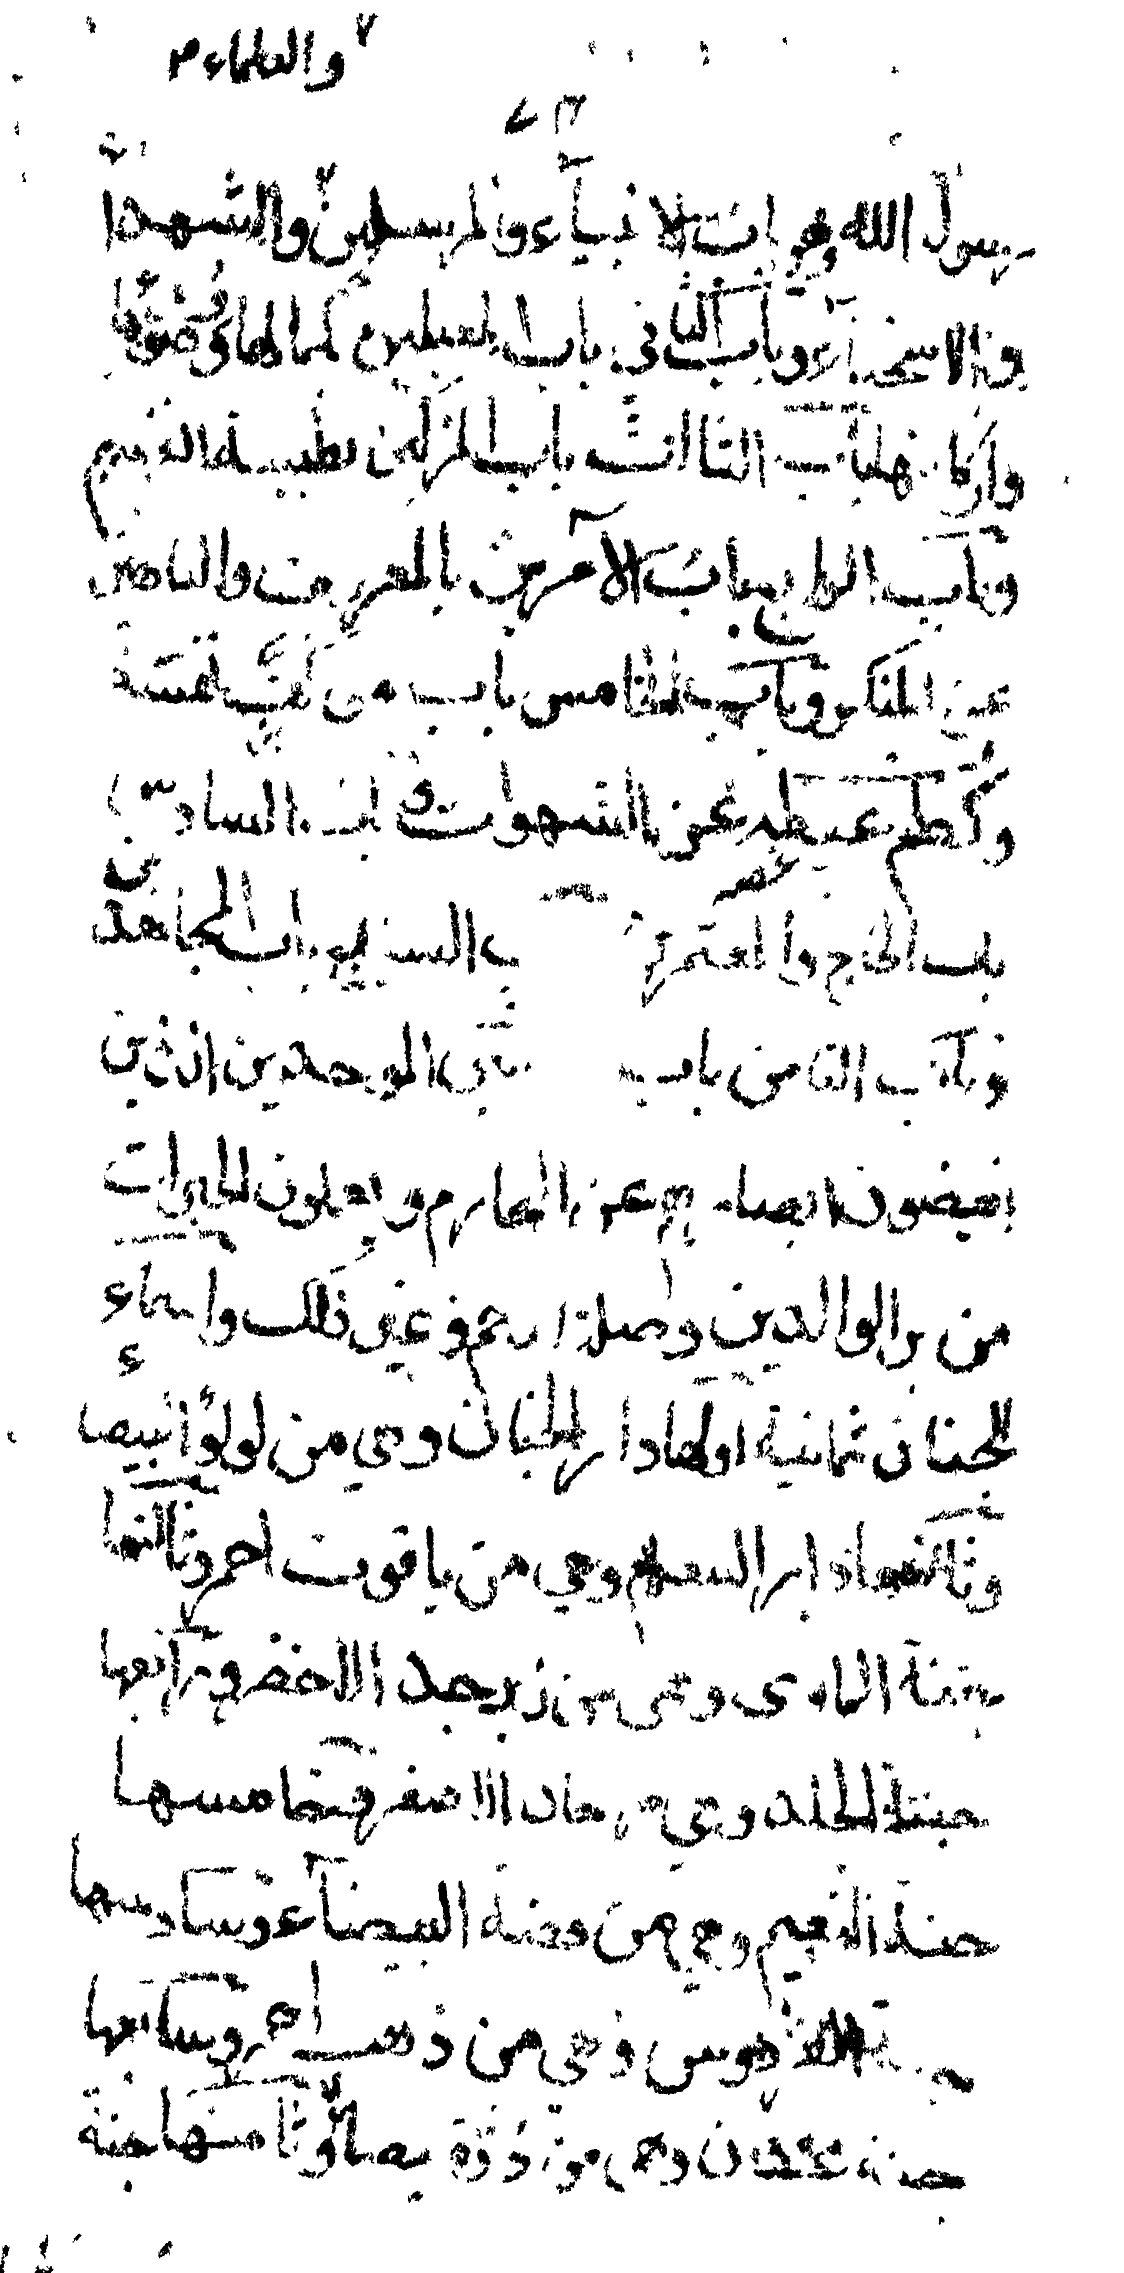 والعلماء
رسول الله وهو باب الانبياء والمرسلين والشهدا
والاسخياء وباب الثاني باب المصلين كمالها وضوءها
واركانها باب الثالث باب المزكين بطيبة انفسهم
وباب الرابع باب الآمرين بالمعروف والناهين
عن المنكر وباب الخامس باب من نفسه
وكظم غيظه عن الشهوات وباب السادس
باب الحاج والمعتمرين باب السابع باب المجاهدين
وباب الثامن باب الموحدين الذين
يغضون ابصارهم عن المحارم ويعملون الخيرات
من بر الوالدين وصلة الرحم وغير ذلك واسماء
الجنان ثمانية اولها دار الجنان وهي من لولؤ ابيض
وثانيها دار السلام وهي من ياقوت احمر وثالثها
جنة الماوى وهي من زبرجد الاخضر ورابعها
جنة الخلد وهي مرجان الاصفر وخامسها
جنة النعيم وهي من فضة البيضاء وسادسها
جنة الفردوس وهي من ذهب احمر وسابعها
جنة عدن وهي من درة بيضا وثامنها جنة